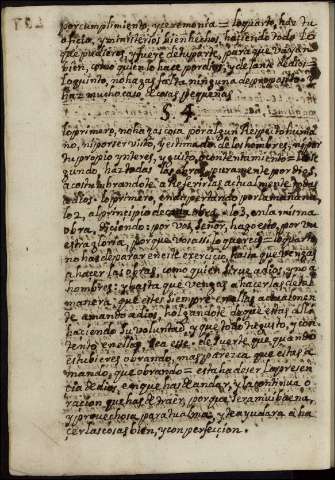 por cumplimiento, y ceremonia = lo quarto, haz tu
oficio, y ministerios bien hechos, haciendo todo lo
que pudieres, y fuere de tu parte, para que vayan
bien, como quien lo hace por dios, y delante de dios =
lo quinto, no hagas falta ninguna de proposito
haz mucho caso de cosas pequeñas
§ 4
lo primero, no hagas cosa por algun respeto huma
no, ni por ser visto, y estimado de los hombres, ni por
tu propio ynteres, y gusto, o contentamiento = lo se
gundo, haz todas las obras puramente por dios,
acostumbrandote a referirlas actualmente todas
a dios. lo primero, en despertando por la mañana
lo 2, al principio de cada obra = lo 3, en la misma
obra, diciendo: por vos, señor, hago esto, por vu
estra gloria, porque vos assi lo quereis = lo quarto
no has de parar en este exercicio, hasta que vengas
a hacer las obras, como quien sirve a dios, y no a
hombres: y hasta que vengas a hacerlas de tal
manera, que estes siempre en ellas actualmen
te amando a dios, holgandote de que estas alli
haciendo su voluntad, y que todo tu gusto, y con
tento en ellas, sea ese. de suerte, que quando
estubieres obrando, mas parezca que estas a
mando, que obrando = esta ha de ser la presen
cia de dios, en que has de andar, y la continua o
racion que has de traer, porque sera mui buena,
y provechosa para tu alma, y te ayudara a ha
cer las cosas bien, y con perfeccion.